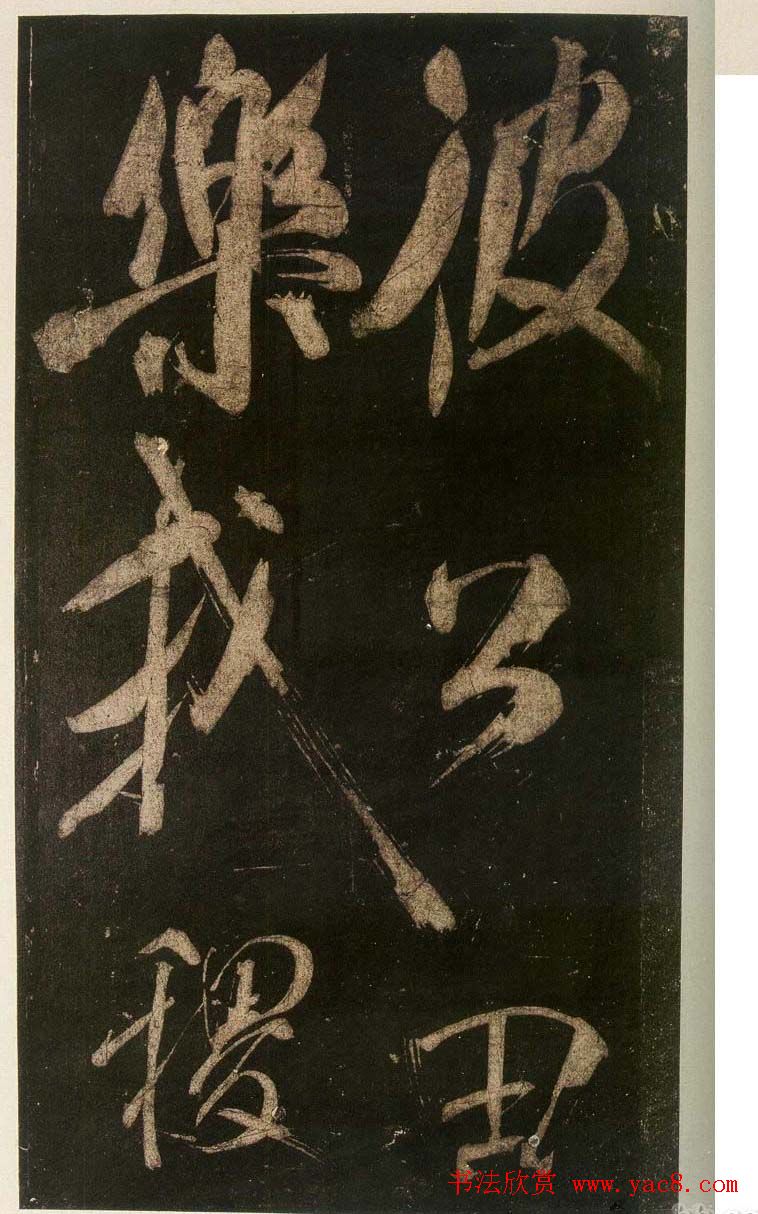 彼公田
樂我稷
书法欣赏 www.yac8.com